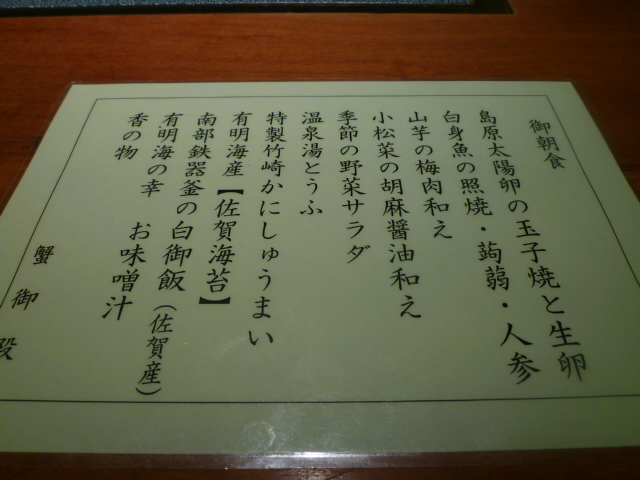 御朝食
島原太陽卵の玉子焼と生卵
白身魚の照焼・蒟蒻・人参
山芋の梅肉和え
小松菜の胡麻醤油和え
季節の野菜サラダ
温泉湯とうふ
特製竹崎かにしゅうまい
有明海産【佐賀海苔】
南部鉄器釜の白御飯（佐賀産）
有明海の幸 お味噌汁
香の物
蟹御殿